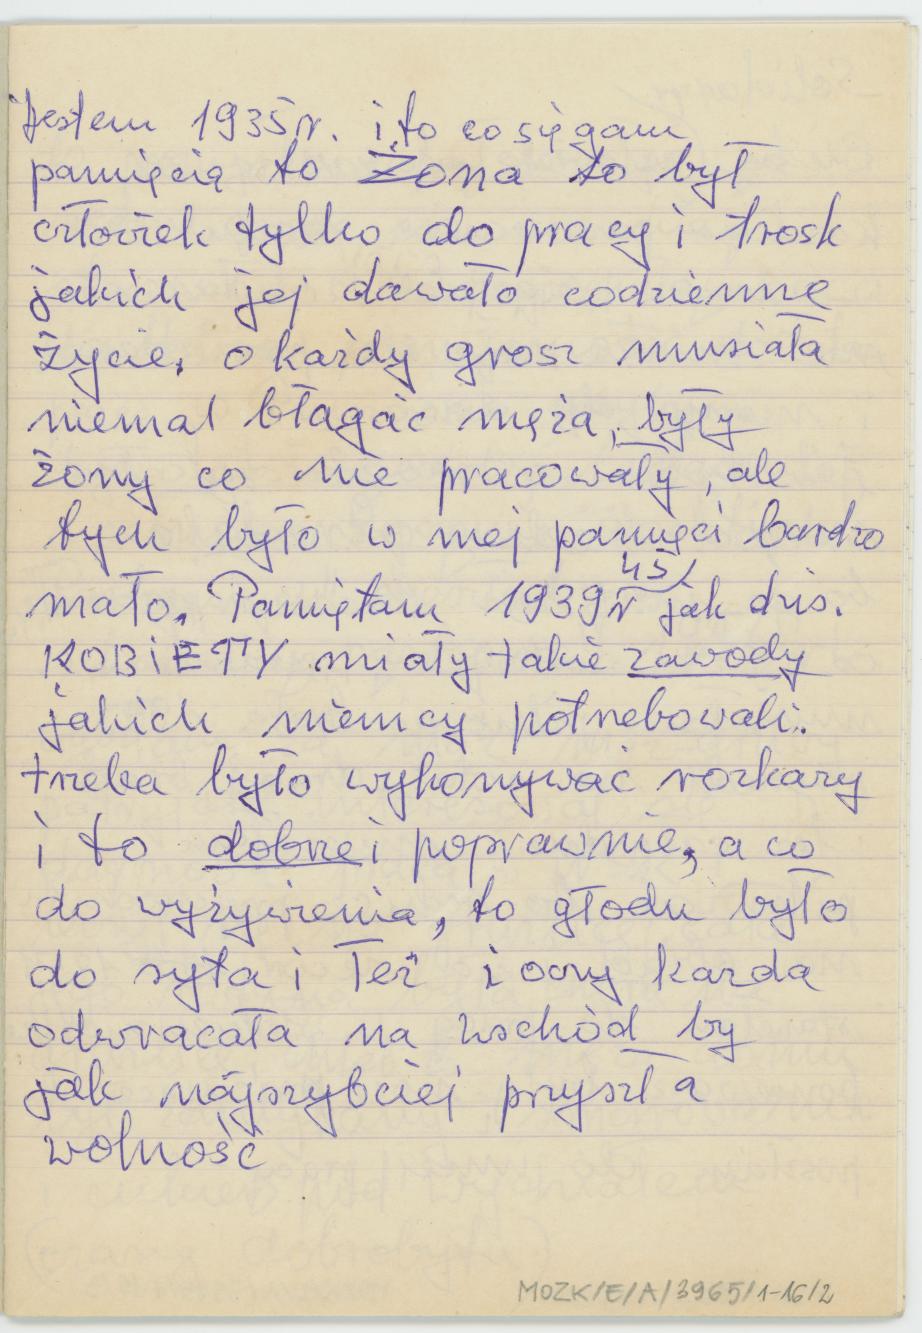 Jestem 1935r. i to co sięgam
pamięcią to Żona to był
człowiek tylko do pracy i trosk
jakich jej dawało codzienne
życie, o każdy grosz musiała
niemal błagać męża, były
żony co nie pracowały, ale
tych było w mej pamięci bardzo
mało. Pamiętam 1939r 45) jak dziś.
KOBIETY miały takie zawody
jakich niemcy potrzebowali.
trzeba było wykonywać rozkazy
i to dobrze i poprawnie, a co
do wyżywienia, to głodu było
do syta i łez i oczy każda
odwracała na wschód by
jak najszybciej przyszła
wolność
MOZK/E/A/3965/1-16/2